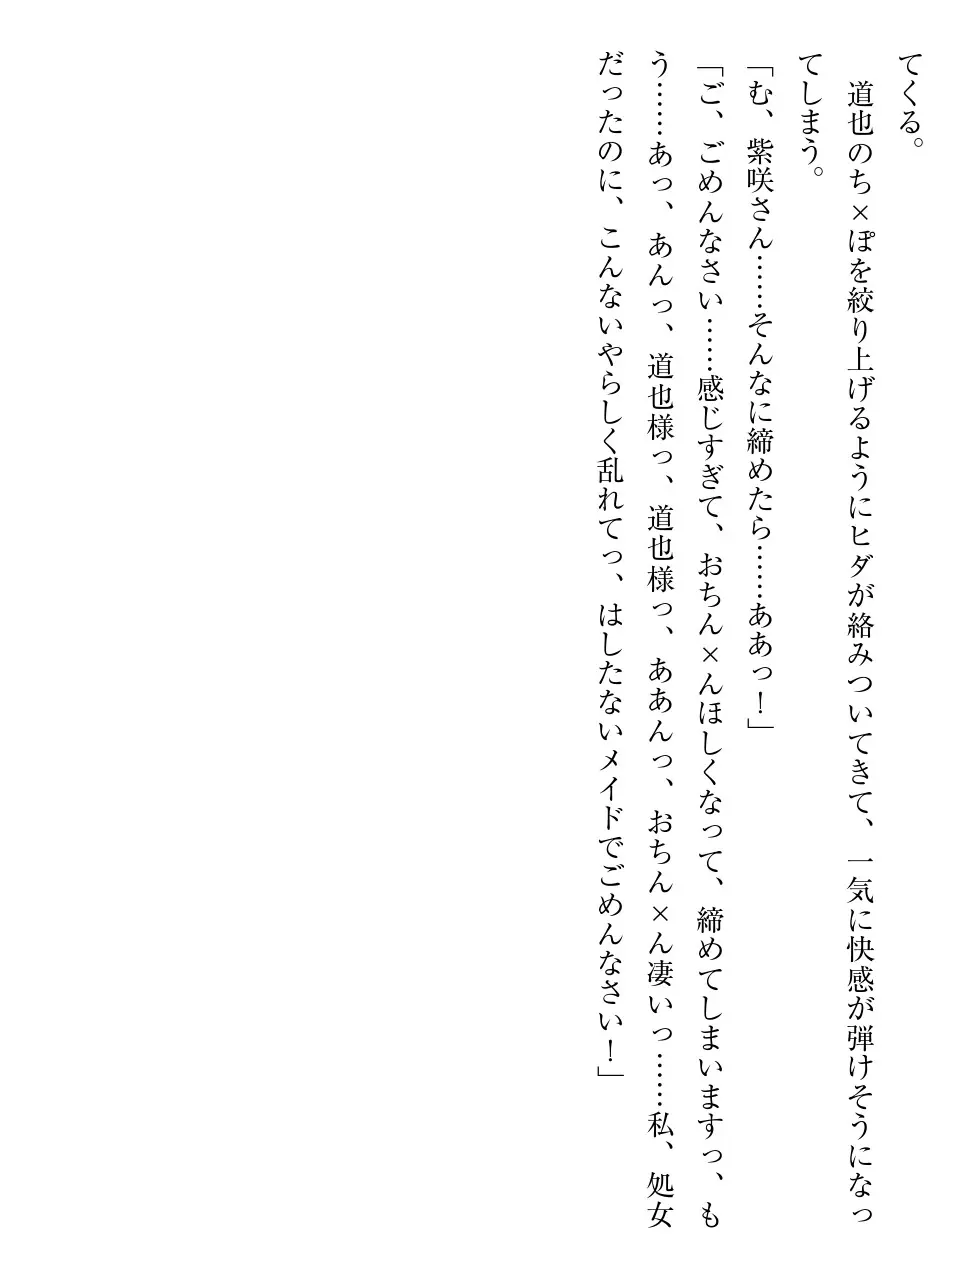 てくる。
　道也のち×ぽを絞り上げるようにヒダが絡みついてきて、一気に快感が弾けそうになっ
てしまう。
「む、紫咲さん……そんなに締めたら……ああっ！」
「ご、ごめんなさい……感じすぎて、おちん×んほしくなって、締めてしまいますっ、も
う……あっ、あんっ、道也様っ、道也様っ、ああんっ、おちん×ん凄いっ……私、処女
だったのに、こんないやらしく乱れてっ、はしたないメイドでごめんなさい！」